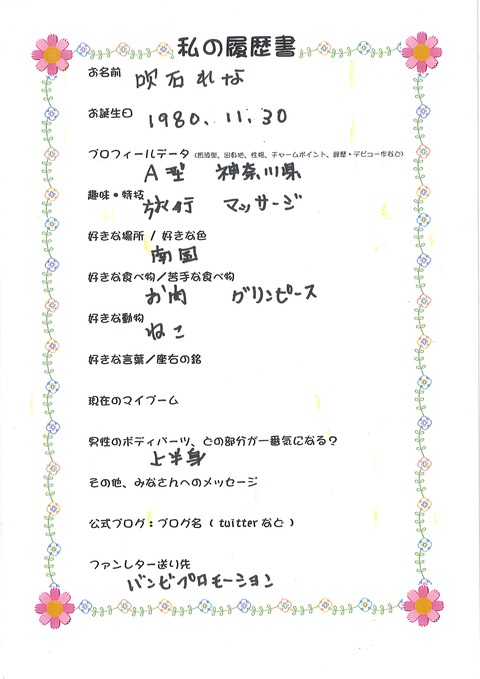 私の履歴書
お名前
吹石れな
お誕生日
1980.11.30
プロフィールデータ（血液型、出身地、性格、チャームポイント、経歴・デビュー作など）
A型 神奈川県
趣味・特技
旅行 マッサージ
好きな場所 / 好きな色
南国
好きな食べ物／苦手な食べ物
お肉 グリンピース
好きな動物
ねこ
好きな言葉／座右の銘
現在のマイブーム
男性のボディパーツ、どの部分が一番気になる？
上半身
その他、みなさんへのメッセージ
公式ブログ：ブログ名（twitterなど）
ファンレター送り先
バンビプロモーション